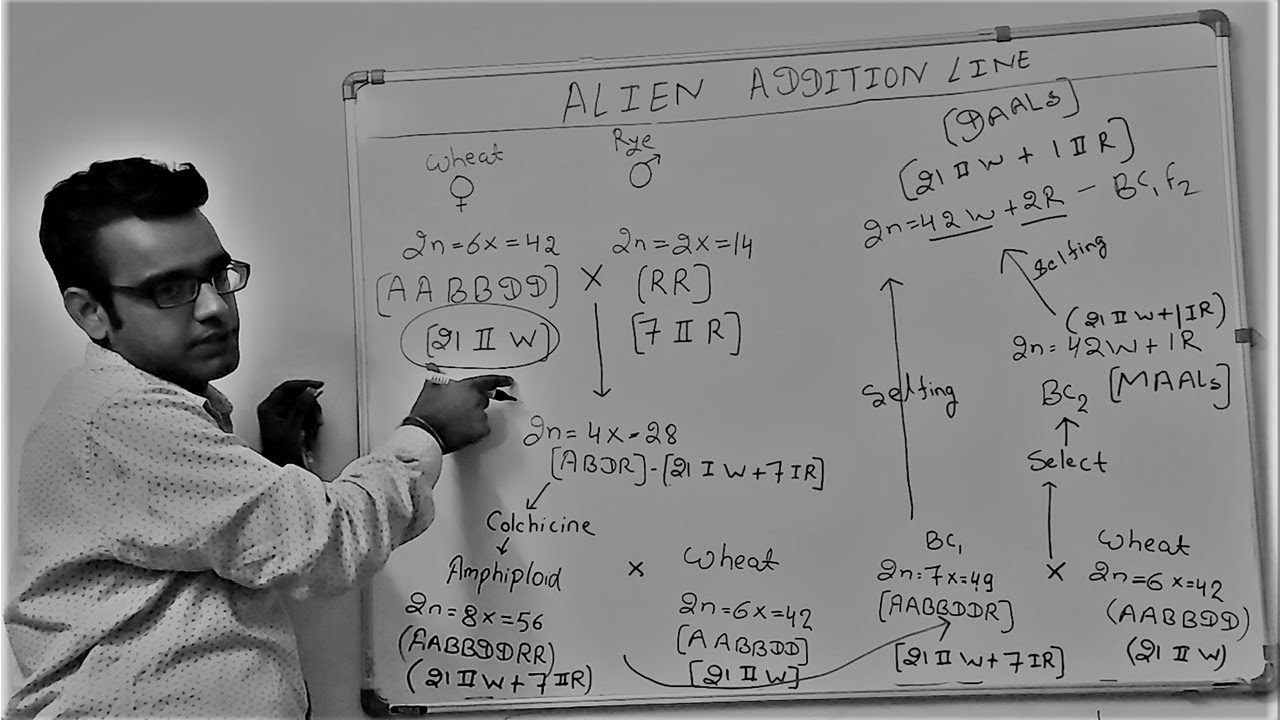 ALIEN ADDITION LINE
Wheat
♀
Rye
♂
2n=6x=42
[AABBDD]
[21 II W]
X
2n=2x=14
[RR]
[7 II R]
2n=4x=28
[ABDR]-[21 I W+7IR]
Colchicine
Amphiploid
2n=8x=56
(AABBDDRR)
(21 II W+7IIR)
×
Wheat
2n=6x=42
[AABBDD]
[21 II W]
BC₁
2n=7x=49
[AABBDDR]
[21 II W+7IR]
×
Wheat
2n=6x=42
(AABBDD)
(21 II W)
Select
BC₂ [MAALs]
2n=42W+1R
(21 II W+1IR)
Selfing
Selfing
2n=42W+2R - BC₁F₂
[21 II W + 1 II R]
[DAALs]